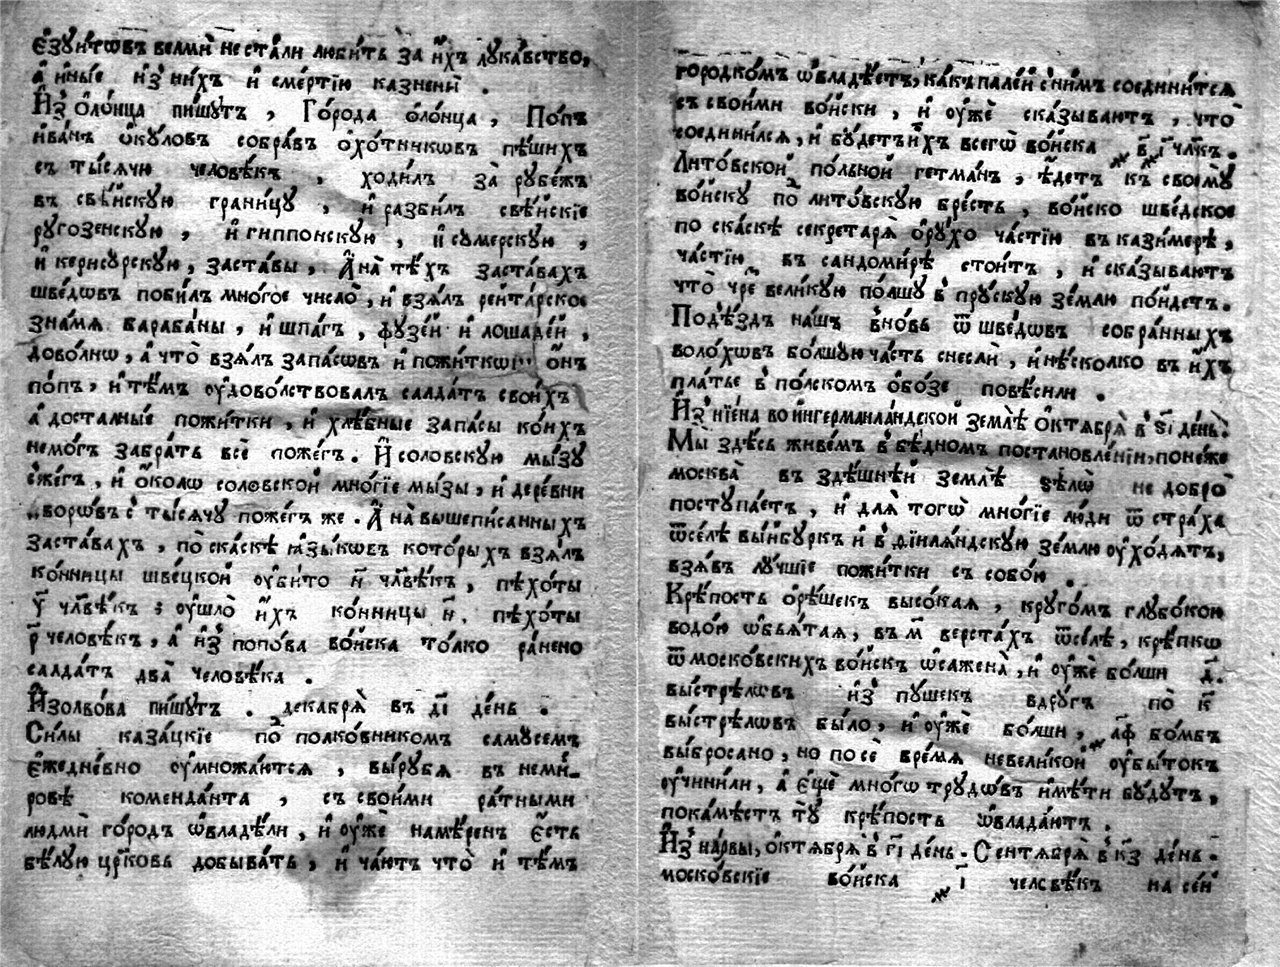 є҆зꙋи́тѡвъ велмѝ не ста́ли люби́ть за и҆́хъ лꙋка́вство,
а҆ и҆ны́е и҆з̾ ни́хъ и҆ сме́ртїю казнены̀ .
И҆з̾ ѻ҆ло́нца пи́шꙋтъ , Го́рода ѻ҆ло́нца , По́пъ
і҆ва́нъ ѻ҆кꙋ́ловъ собра́въ ѻ҆хо́тникѡвъ пѣ́шихъ
съ ты́сячю человѣ́къ , ходи́лъ за рꙋбе́жъ
въ свѣ́йскꙋю грани́цꙋ , и҆ разби́лъ свѣ́йскїе
рꙋгозенскꙋю , и҆ гиппонскꙋю , и҆ сꙋмерскꙋю ,
и҆ керисꙋрскꙋю , заста́вы , А҆ на тѣ́хъ заста́вахъ
шве́дѡвъ поби́лъ мно́гое число̀ , и҆ взя́лъ рейта́рское
зна́мя бараба́ны , и҆ шпа́гъ , фꙋзе́й и҆ лошаде́й ,
дово́лнѡ , а҆ что̀ взя́лъ запа́сѡвъ и҆ пожи́ткѡвъ ѻ҆́нъ
по́пъ , и҆ тѣ́мъ ᲂу҆дово́лствовалъ салда́тъ свои́хъ
а҆ доста́лные пожи́тки , и҆ хлѣ́бные запа́сы ко́ихъ
не мо́гъ забра́ть всѐ пожегъ . И҆ соловскꙋю мы́зꙋ
сже́гъ , и҆ ѻ҆́колѡ соло́вской мно́гїе мы́зы , и҆ дере́вни
дворѡ́въ с̾ ты́сячꙋ пожегъ же . А҆ на вышепи́санныхъ
заста́вахъ , по ска́скѣ ꙗ҆зы́кѡвъ кото́рыхъ взя́лъ
ко́нницы шве́цкой ᲂу҆би́то н҃ чл҃вѣ́къ , пѣхо́ты
у҃ чл҃вѣ́къ ; ᲂу҆шло̀ и҆́хъ ко́нницы н҃ . пѣхо́ты
р҃ человѣ́къ , а҆ и҆з̾ попо́ва во́йска то́лко ра́нено
салда́тъ два̀ человѣ́ка .
И҆зо лво́ва пи́шꙋтъ . декабря̀ въ д҃і де́нь .
Си́лы каза́цкїе под̾ полко́вникомъ самꙋсемъ
є҆жедне́вно ᲂу҆множа́ются , вы́рꙋбя въ неми́-
ровѣ коменда́нта , съ свои́ми ра́тными
людмѝ го́родъ ѡ҆владѣ́ли , и҆ ᲂу҆жѐ намѣ́ренъ є҆́сть
бѣ́лꙋю цр҃ковь добыва́ть , и҆ ча́ютъ что̀ и҆ тѣ́мъ
городко́мъ ѡ҆владѣ́етъ , ка́къ пале́й с̾ ни́мъ соедини́тся
съ свои́ми во́йски , и҆ ᲂу҆жѐ ска́зываютъ , что̀
соедини́лся , и҆ бꙋ́детъ и҆́хъ всегѡ̀ во́йска в҃і чл҃къ .
Лито́вской по́льной ге́тманъ , ѣ҆́детъ къ своемꙋ̀
во́йскꙋ под̾ лито́вскꙋю бре́сть , во́йско шве́дское
по ска́скѣ секретаря̀ ѻ҆рꙋ́хо ча́стїю въ казимерѣ ,
ча́стїю въ сандоми́рѣ стои́тъ , и҆ ска́зываютъ
что̀ чре́з̾ вели́кꙋю по́лшꙋ в̾ прꙋ́скꙋю зе́млю по́йдетъ .
Под̾ѣ́здъ на́шъ вно́вь ѿ шве́дѡвъ собра́нныхъ
воло́хѡвъ бо́лшꙋю ча́сть снеслѝ , и҆ нѣ́сколко въ и҆́хъ
пла́тье в̾ по́лскомъ ѻ҆бо́зе повѣ́сили .
И҆з̾ нїе́на во и҆нгерманла́ндской землѣ̀ ѻ҆ктября̀ в̾ ѕ҃і де́нь .
Мы̀ здѣ́сь живе́мъ в̾ бѣ́дномъ постановле́нїи , поне́же
москва̀ въ здѣ́шней землѣ̀ ѕѣлѡ̀ не добро̀
постꙋпа́етъ , и҆ для̀ тогѡ̀ мно́гїе лю́ди ѿ стра́ха
ѿселѣ вы́йбꙋркъ и҆ в̾ фїнля́ндскꙋю зе́млю ᲂу҆хо́дятъ ,
взя́въ лꙋ́чшїе пожи́тки съ собо́ю .
Крѣ́пость ѻ҆рѣ́шекъ высо́кая , крꙋго́мъ глꙋбо́кою
водо́ю ѡ҆б̾я́тая , въ м҃ верста́хъ ѿсе́лѣ , крѣ́пкѡ
ѿ моско́вскихъ во́йскъ ѡ҆сажена̀ , и҆ ᲂу҆жѐ бо́лши д҃ .
вы́стрѣлѡвъ и҆з̾ пꙋ́шекъ вдрꙋ́гъ по к҃
вы́стрѣлѡвъ бы́ло , и҆ ᲂу҆жѐ бо́лши , а҃ф бо́мбъ
вы́бросано , но по сѐ вре́мя невели́кой ᲂу҆бы́токъ
ᲂу҆чини́ли , а҆ є҆щѐ мно́гѡ трꙋдѡ́въ и҆мѣ́ти бꙋ́дꙋтъ ,
пока́мѣстъ тꙋ̀ крѣ́пость ѡ҆влада́ютъ .
И҆з̾ на́рвы , ѻ҆ктября̀ в̾ г҃і де́нь . Сентября̀ в̾ к҃ѕ де́нь .
моско́вскїе во́йска і҃ человѣ́къ на се́й